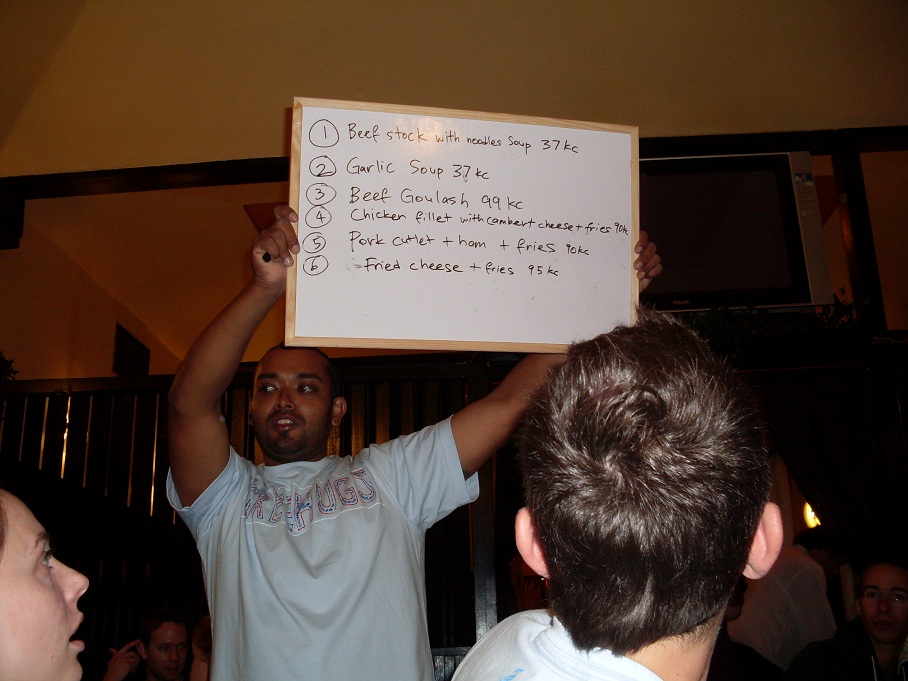 1 Beef stock with noodles Soup 37 kc
2 Garlic Soup 37 kc
3 Beef Goulash 99 kc
4 Chicken fillet with cambert cheese + fries 90kc
5 Pork cutlet + ham + fries 90kc
6 Fried cheese + fries 95 kc
PHILIPS